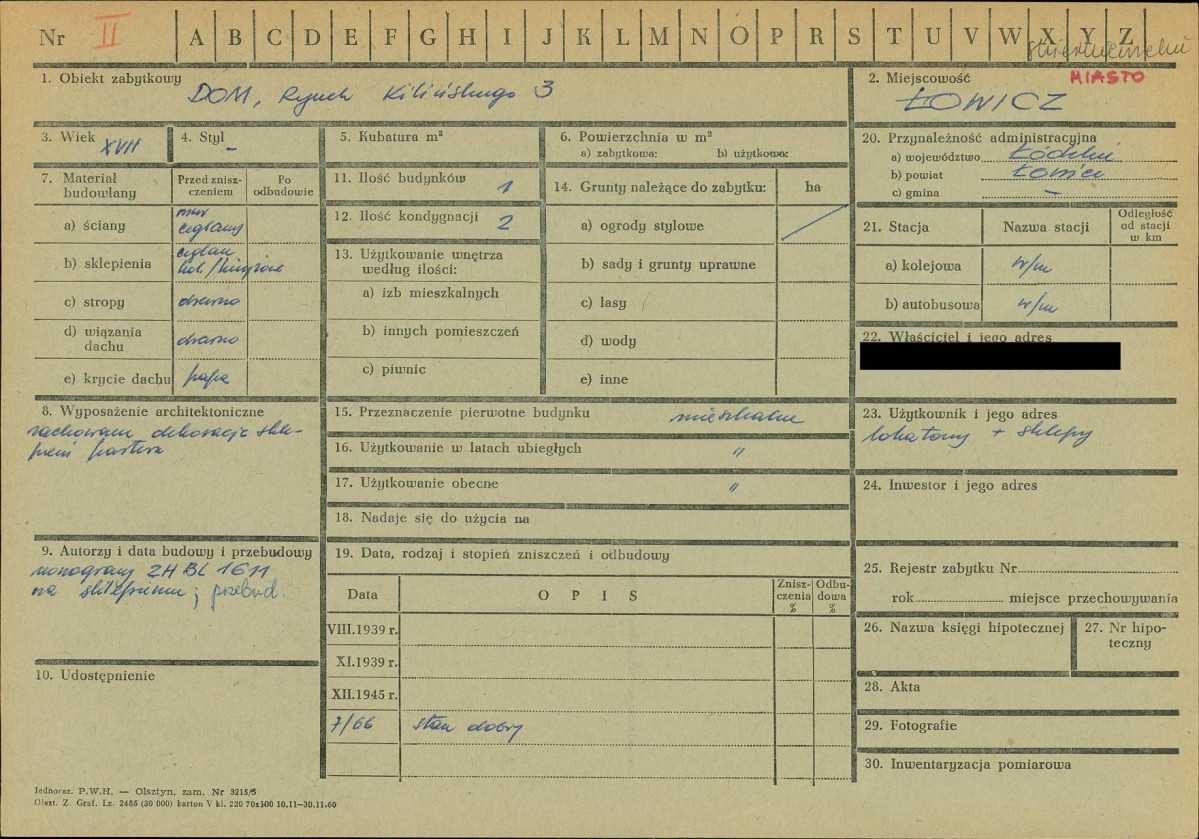 Nr II A B C D E F G H I J K L M N O P R S T U V W X Y Z
1. Obiekt zabytkowy
DOM, Rynek Kilińskiego 3
2. Miejscowość MIASTO
ŁOWICZ
3. Wiek XVII
4. Styl –
5. Kubatura m³
6. Powierzchnia w m²
a) zabytkowa: b) użytkowa:
7. Materiał budowlany
Przed zniszczeniem
Po odbudowie
a) ściany mur ceglany
b) sklepienia ceglan kol./krzyżowe
c) stropy drewno
d) wiązania dachu drewno
e) krycie dachu papa
8. Wyposażenie architektoniczne
zachowana dekoracja skle-
pień parteru
9. Autorzy i data budowy i przebudowy
monogramy ZH BL 1611
na sklepieniu; przebud.
10. Udostępnienie
11. Ilość budynków 1
12. Ilość kondygnacji 2
13. Użytkowanie wnętrza
według ilości:
a) izb mieszkalnych
b) innych pomieszczeń
c) piwnic
14. Grunty należące do zabytku: ha
a) ogrody stylowe
b) sady i grunty uprawne
c) lasy
d) wody
e) inne
15. Przeznaczenie pierwotne budynku mieszkalne
16. Użytkowanie w latach ubiegłych "
17. Użytkowanie obecne "
18. Nadaje się do użycia na
19. Data, rodzaj i stopień zniszczeń i odbudowy
Data OPIS Znisz-czenia % Odbu-dowa %
VIII.1939 r.
XI.1939 r.
XII.1945 r.
7/66 stan dobry
20. Przynależność administracyjna
a) województwo Łódzkie
b) powiat Łowicz
c) gmina –
21. Stacja Nazwa stacji Odległość od stacji w km
a) kolejowa w/m
b) autobusowa w/m
22. Właściciel i jego adres
23. Użytkownik i jego adres
lokatorzy + sklepy
24. Inwestor i jego adres
25. Rejestr zabytku Nr
rok miejsce przechowywania
26. Nazwa księgi hipotecznej
27. Nr hipo-
teczny
28. Akta
29. Fotografie
30. Inwentaryzacja pomiarowa
Jednoraz. P.W.H. — Olsztyn, zam. Nr 3215/5
Olszt. Z. Graf. Lz. 2485 (30 000) karton V kl. 220 70x100 10.11—30.11.60